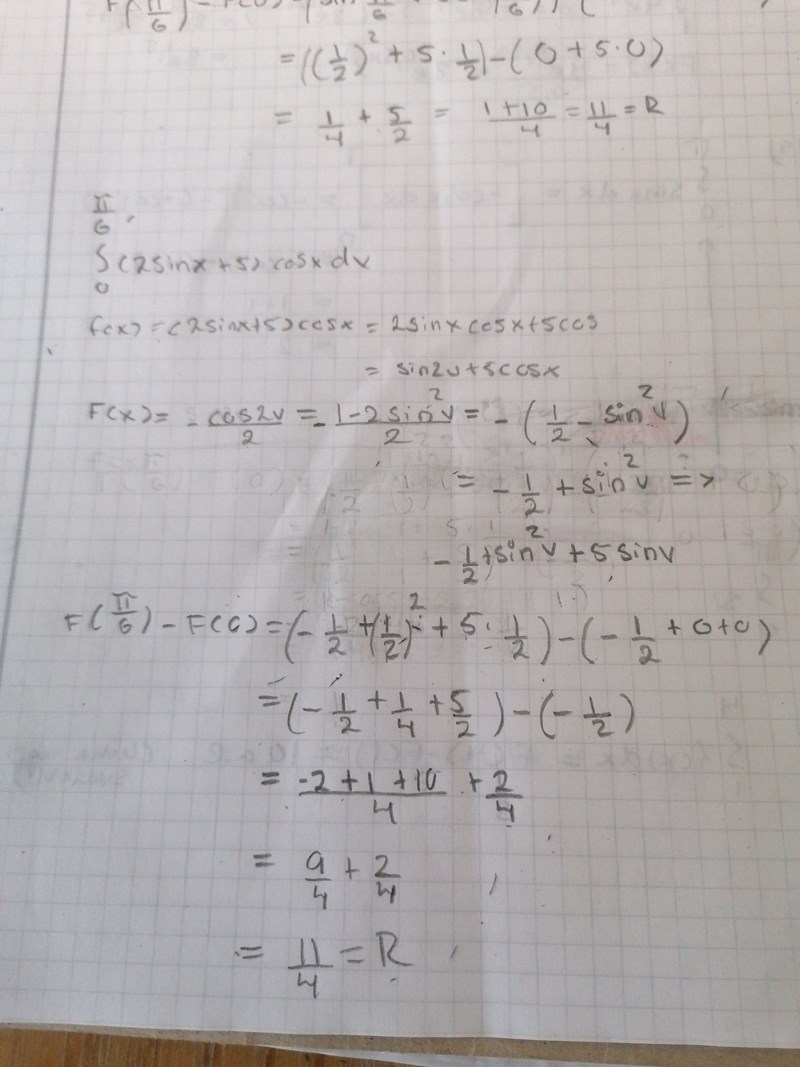 = ((1/2)² + 5 · 1/2) - (0 + 5·0)
= 1/4 + 5/2 = 1+10/4 = 11/4 = R
π/6
∫(2sinx+5) cosx dv
0
f(x) = (2sinx+5)cosx = 2sinx cosx+5cos
= sin2v+5cosx
F(x) = - cos2v/2 = - 1-2sin²v/2 = - (1/2 - sin²v)
= - 1/2 + sin²v =>
- 1/2 + sin²v + 5 sinv
F(π/6) - F(0) = (- 1/2 + (1/2)² + 5· 1/2) - (- 1/2 + 0+0)
= (- 1/2 + 1/4 + 5/2) - (- 1/2)
= -2+1+10/4 + 2/4
= 9/4 + 2/4
= 11/4 = R